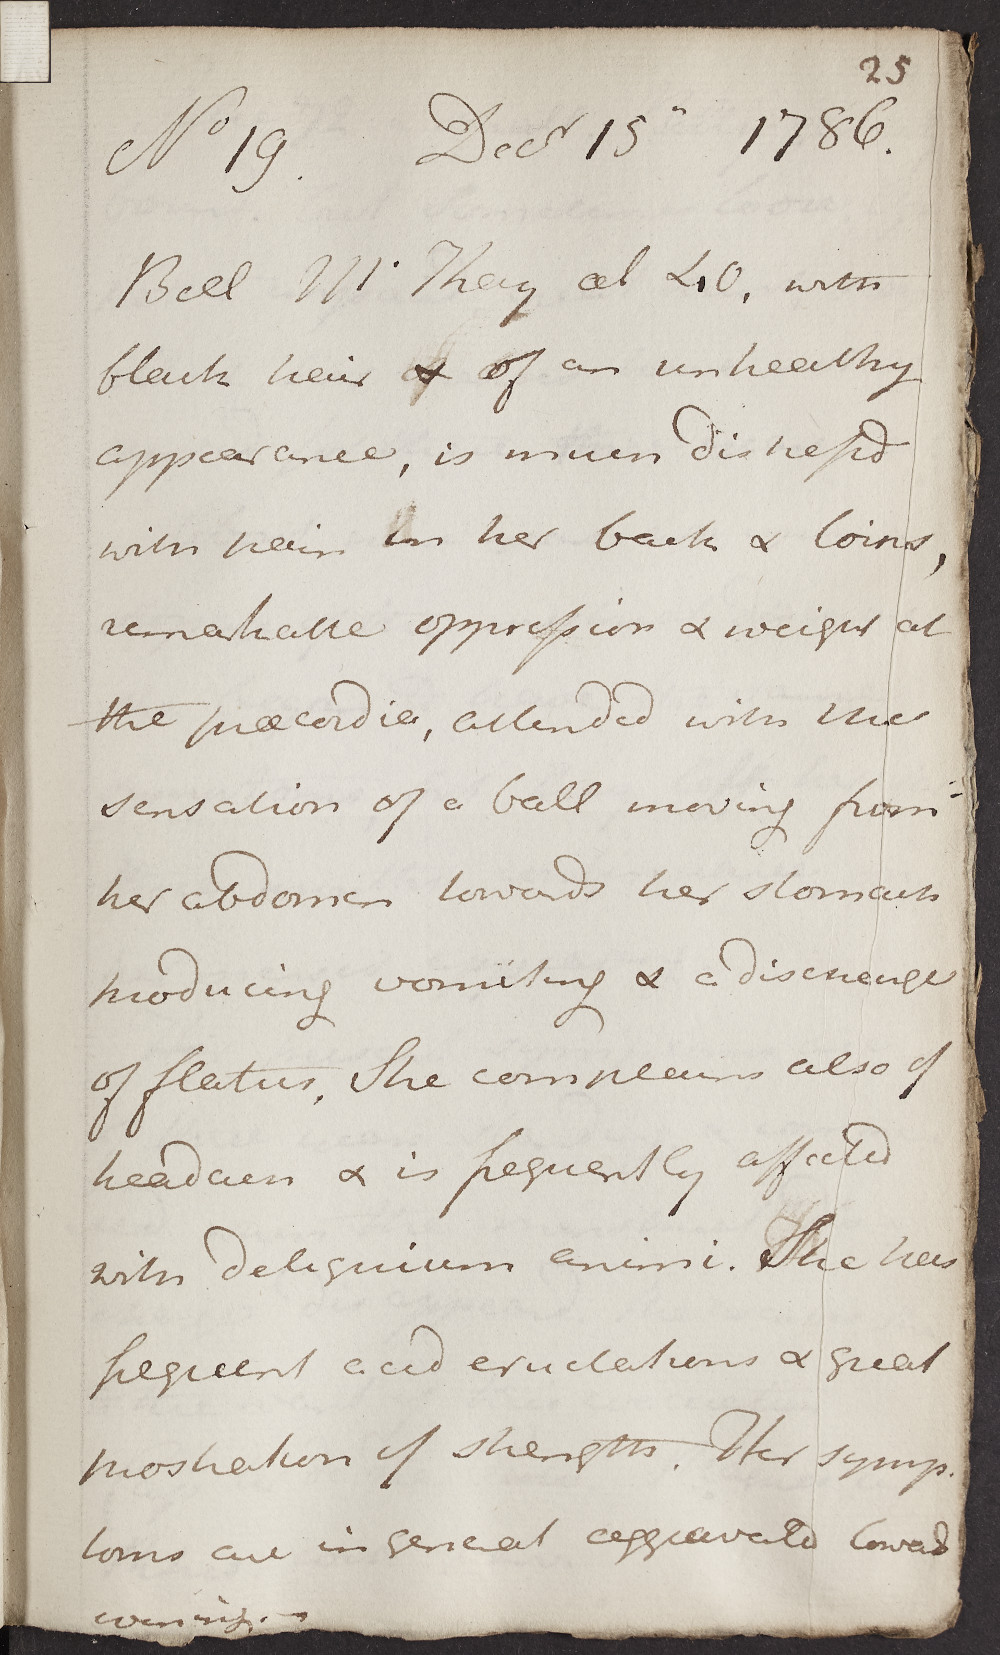 25
No 19. Decr 15" 1786.
Bell Mc Kay æt 40, with
black hair & of an unhealthy
appearance, is much distressd
with pain in her back & loins,
remarkable oppression & weight at
the præcordia, attended with the
sensation of a ball moving from
her abdomen towards her stomach
producing vomiting & a discharge
of flatus. She complains also of
headach & is frequently affected
with deliquium animi. She has
frequent acid eructations & great
prostration of strength. Her symp-
toms are in general aggravated toward
evening.